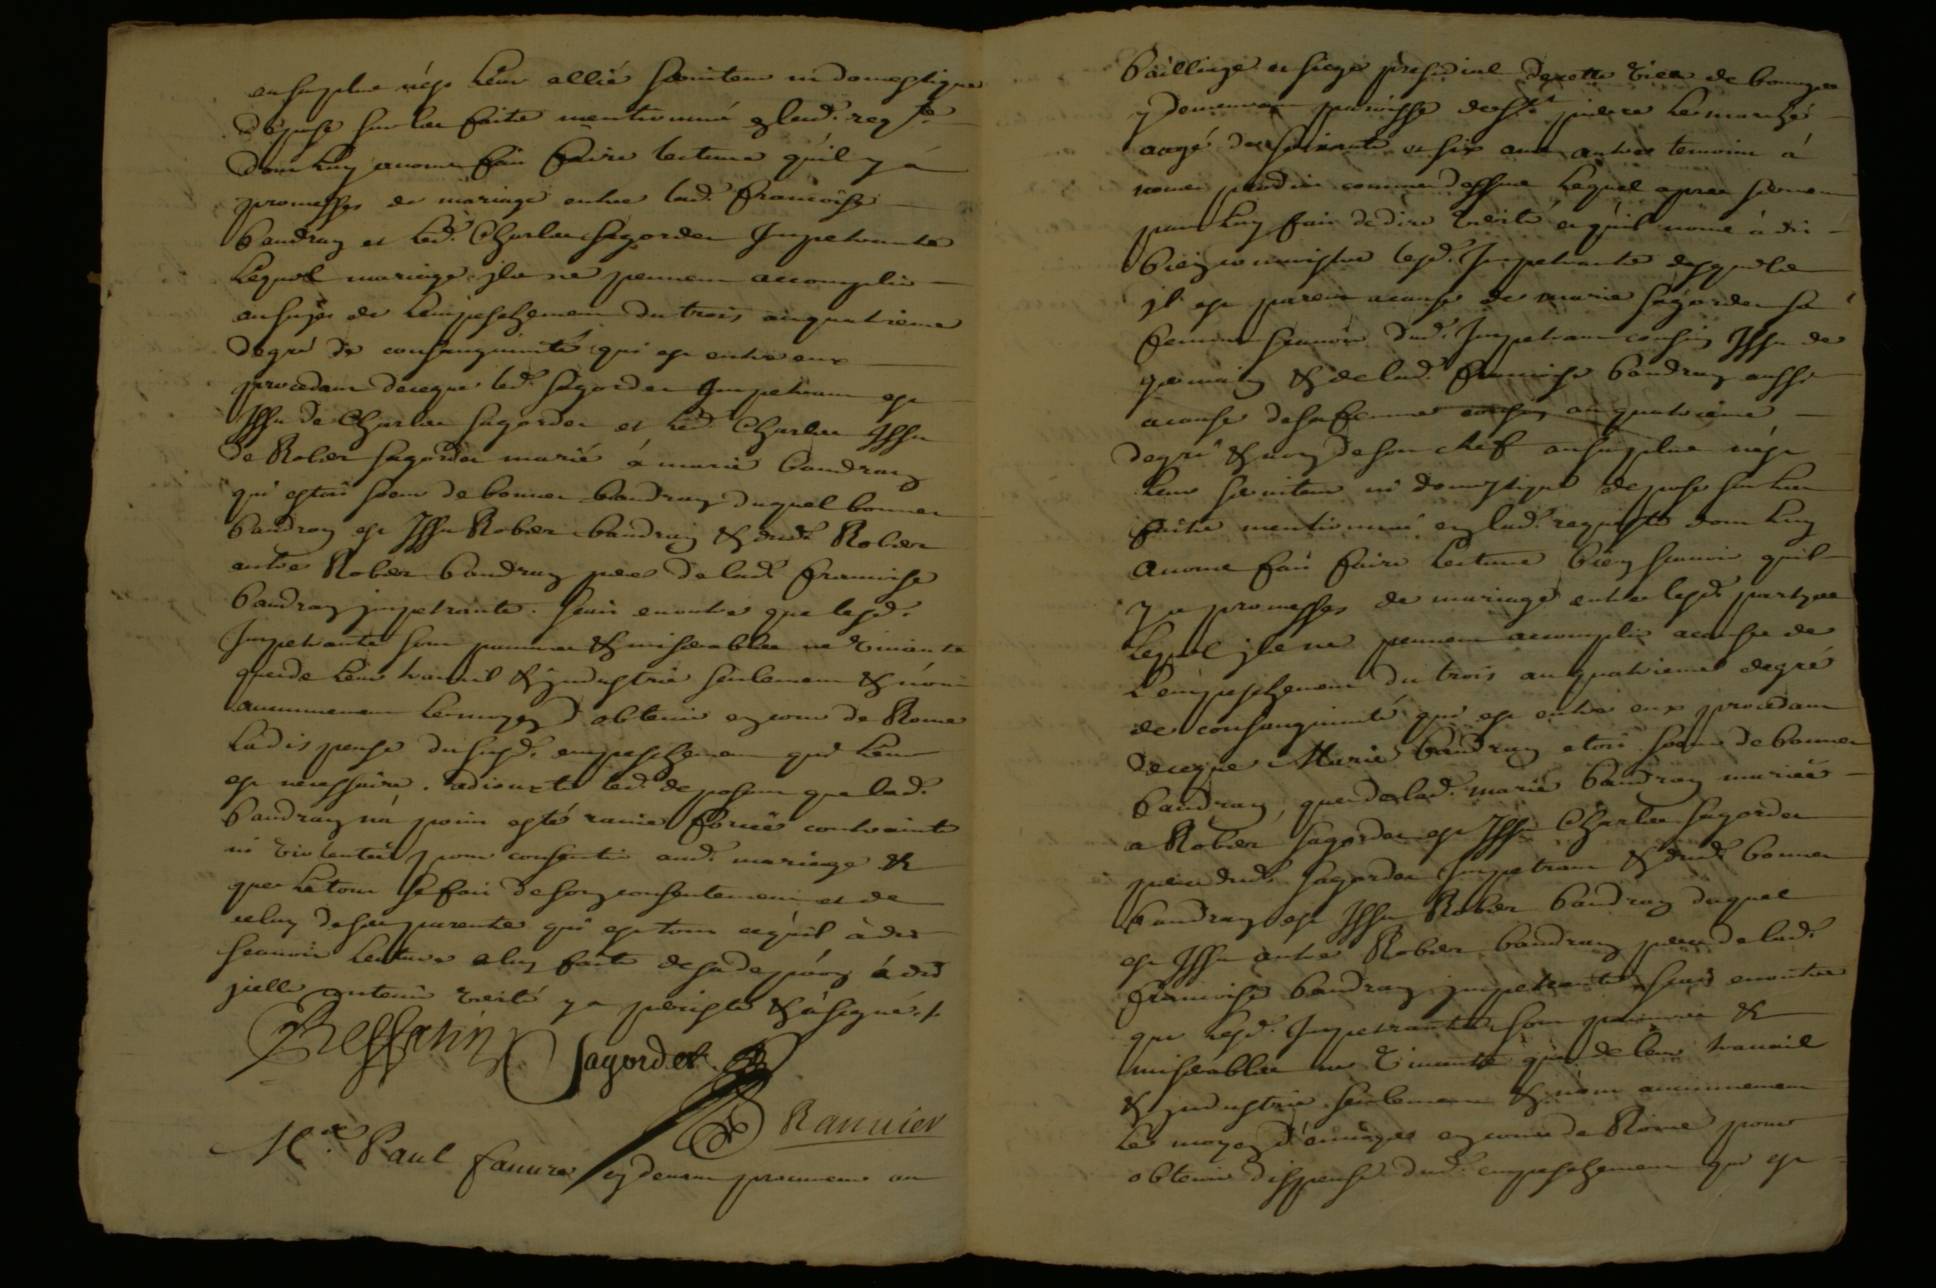 au surplus n'est leur allié serviteur ni domestique
dépose sur les faits mentionné en lad. req.te
dont luy avons fait faire lecture qu'il y á
promesses de mariage entre lad. francoise
baudray et led. Charles Sagordet Impetrants
Lequel mariage ils ne peuvent accomplir
au sujet de l'empeschement du trois au quatrieme
degré de consanguinité qui est entre eux
procedant de ce que led. Sagordet Impetrant est
Issu de Charles Sagordet et led. Charles Issu
de Rober Sagordet marié á marie baudray
qui estoit soeur de bonnet baudray duquel bonnet
baudray est Issu Rober baudray & dud. Rober
autre Rober baudray pere de lad. francoise
baudray impetrante. Scait en outre que lesd.
Impetrants sont pauvres & miserables ne vivants
que de leur travail & industrie seulement & n'ont
aucunement les moyens d'obtenir en cour de Rome
La dispense du susd. empeschement qui leur
est necessaire. adjoute led. deposant que lad.
baudray n'á point esté ravie forcée contrainte
ni violentée pour consentir aud. mariage &
que le tout se fait de son consentement et de
celuy de ses parents qui est tout ce qu'il à dit
scavoir Lecture a luy faite de sa depôon á dit
icelle contenir verité y a persisté & á signé ./.
Sagordet
Rannier
M.e Paul faure cy devant procureur au
bailliage et siege presidial de cette ville de bourges
y demeurant parroisse de St. pierre le marché
aagé de soixante et six ans autre temoin á
nous produit comme dessus Lequel apres serment
par luy fait de dire verité et qu'il nous á dit
bien connoistre lesd. Impetrants desquels
il est parent a cause de marie Sagordet sa
femme scavoir dud. Impetrant cousin Issu de
germain & de lad. francoise baudray aussi
a cause de sa femme au quatrieme
degré & non de son chef au surplus n'est
leur serviteur ni domestique depose sur les
faits mentionné en lad. requeste dont luy
avons fait faire lecture bien scavoir qu'il
y a promesses de mariage entre lesd. partyes
Lequel ils ne peuvent accomplir a cause de
L'empeschement du trois au quatrieme degré
de consanguinité qui est entre eux procedant
de ce que Marie baudray etoit soeur de bonnet
baudray, que de lad. marie baudray mariée
a Rober Sagordet est Issu Charles Sagordet
pere dud. Sagordet Impetrant & dud. bonnet
baudray est Issu Rober baudray duquel
est Issu autre Rober baudray pere de lad.
francoise baudray impetrante scait en outre
que lesd. Impetrants sont pauvres &
miserables ne vivants que de leur travail
& industrie seulement & n'ont aucunement
les moyens d'envoyer en cour de Rome pour
obtenir dispense dud. empeschement qui est